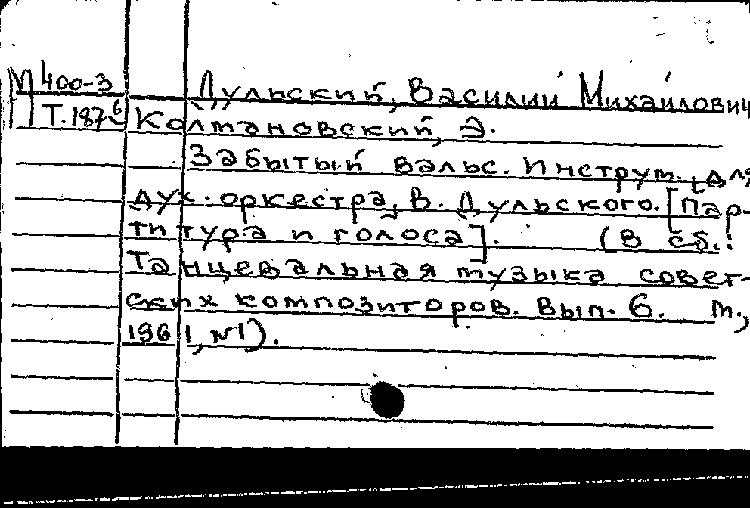 М 400-3 Дульский, Василий Михайлович
Т.187б Колмановский, Э.
Забытый вальс. Инструм. для
дух. оркестра, В. Дульского. [Пар-
титура и голоса]. (В сб.:
Танцевальная музыка совет-
ских композиторов. Вып. 6. М.,
1961, №1).